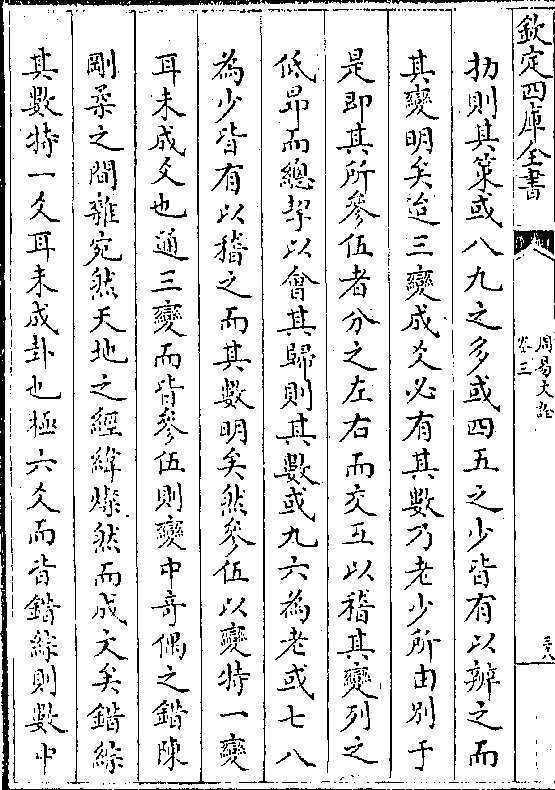 欽定四庫全書
周易大全
卷三
三六
扐則其策或八九之多或四五之少皆有以辨之而
其變明矣迨三變成爻必有其數乃老少所由別于
是即其所參伍者分之左右而交互以稽其變列之
低昻而總挈以會其歸則其數或九六為老或七八
為少皆有以稽之而其數明矣然參伍以變特一變
耳未成爻也通三變而皆參伍則變中奇偶之錯陳
剛柔之間雜宛然天地之經緯燦然而成文矣錯綜
其數特一爻耳未成卦也極六爻而皆錯綜則數中